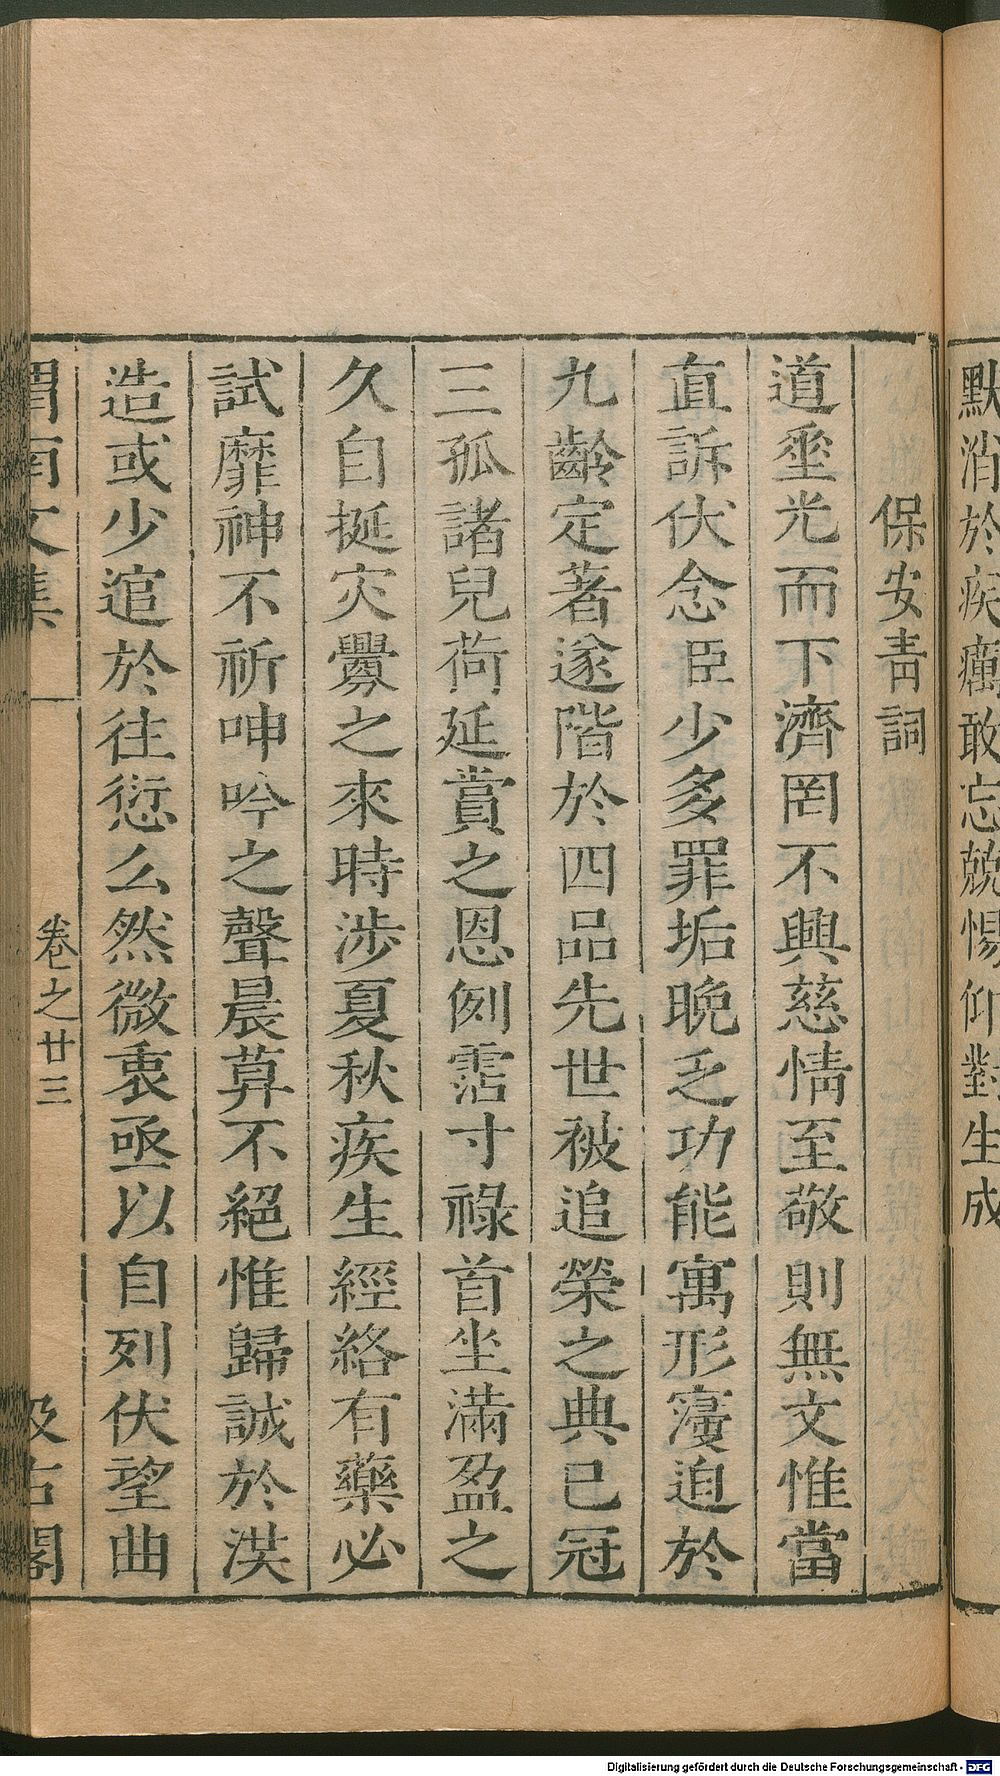 默消於疾癘敢忘兢惕仰對生成
保安青詞
道垂光而下濟罔不興慈情至敬則無文惟當
直訴伏念臣少多罪垢晚乏功能寓形寖迫於
九齡定著遂階於四品先世被追榮之典已冠
三孤諸兒荷延賞之恩例霑寸祿首坐滿盈之
久自挻灾釁之來時涉夏秋疾生經絡有藥必
試靡神不祈呻吟之聲晨暮不絕惟歸誠於洪
造或少逭於往愆么然微衷亟以自列伏望曲
渭南文集 卷之廿三 汲古閣
Digitalisierung gefördert durch die Deutsche Forschungsgemeinschaft - DFG